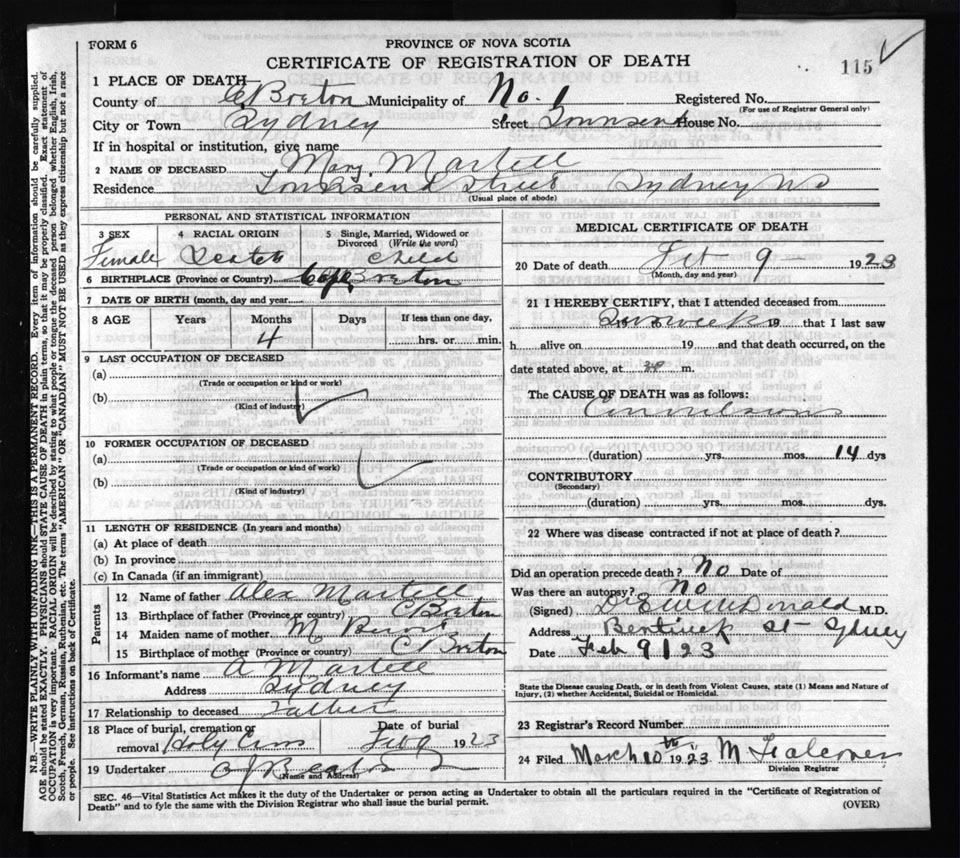 FORM 6
PROVINCE OF NOVA SCOTIA
CERTIFICATE OF REGISTRATION OF DEATH
115
1 PLACE OF DEATH
County of C Breton Municipality of No. 1 Registered No.
(For use of Registrar General only)
City or Town Sydney Street Townsend House No.
If in hospital or institution, give name
2 NAME OF DECEASED Mary Martell
Residence Townsend Street Sydney NS
(Usual place of abode)
PERSONAL AND STATISTICAL INFORMATION
3 SEX 4 RACIAL ORIGIN 5 Single, Married, Widowed or Divorced (Write the word)
Female Scotch Child
6 BIRTHPLACE (Province or Country) Cape Breton
7 DATE OF BIRTH (month, day and year)
8 AGE Years Months Days If less than one day,
4 hrs. or min.
9 LAST OCCUPATION OF DECEASED
(a)
(Trade or occupation or kind or work)
(b)
(Kind of industry)
10 FORMER OCCUPATION OF DECEASED
(a)
(Trade or occupation or kind of work)
(b)
(Kind of industry)
11 LENGTH OF RESIDENCE (In years and months)
(a) At place of death
(b) In province
(c) In Canada (if an immigrant)
Parents
12 Name of father Alex Martell
13 Birthplace of father (Province or country) C Breton
14 Maiden name of mother M
15 Birthplace of mother (Province or country) C Breton
16 Informant's name A Martell
Address Sydney
17 Relationship to deceased Father
18 Place of burial, cremation or removal Holy Cross Date of burial Feb 9 1923
19 Undertaker
(Name and Address)
MEDICAL CERTIFICATE OF DEATH
20 Date of death Feb 9 1923
(Month, day and year)
21 I HEREBY CERTIFY, that I attended deceased from
19 to 19 that I last saw
h alive on 19 and that death occurred, on the
date stated above, at m.
The CAUSE OF DEATH was as follows:
Convulsions
(duration) yrs. mos. 14 dys
CONTRIBUTORY
(Secondary)
(duration) yrs. mos. dys.
22 Where was disease contracted if not at place of death?
Did an operation precede death? No Date of
Was there an autopsy? No
(Signed) Donald M.D.
Address Bentinck St Sydney
Date Feb 9 / 23
State the Disease causing Death, or in death from Violent Causes, state (1) Means and Nature of Injury, (2) whether Accidental, Suicidal or Homicidal.
23 Registrar's Record Number
24 Filed March 10th 1923 M Falconer
Division Registrar
SEC. 46—Vital Statistics Act makes it the duty of the Undertaker or person acting as Undertaker to obtain all the particulars required in the "Certificate of Registration of Death" and to fyle the same with the Division Registrar who shall issue the burial permit.
(OVER)
N.B.—WRITE PLAINLY WITH UNFADING INK—THIS IS A PERMANENT RECORD. Every item of information should be carefully supplied.
AGE should be stated EXACTLY. PHYSICIANS should STATE CAUSE OF DEATH in plain terms, so that it may be properly classified. Exact statement of
OCCUPATION is very important. RACIAL ORIGIN will be described by stating to what people or tongue the deceased person belonged whether English, Irish,
Scotch, French, German, Russian, Ruthenian, etc. The terms "AMERICAN" OR "CANADIAN" MUST NOT BE USED as they express citizenship but not a race
or people. See instructions on back of Certificate.